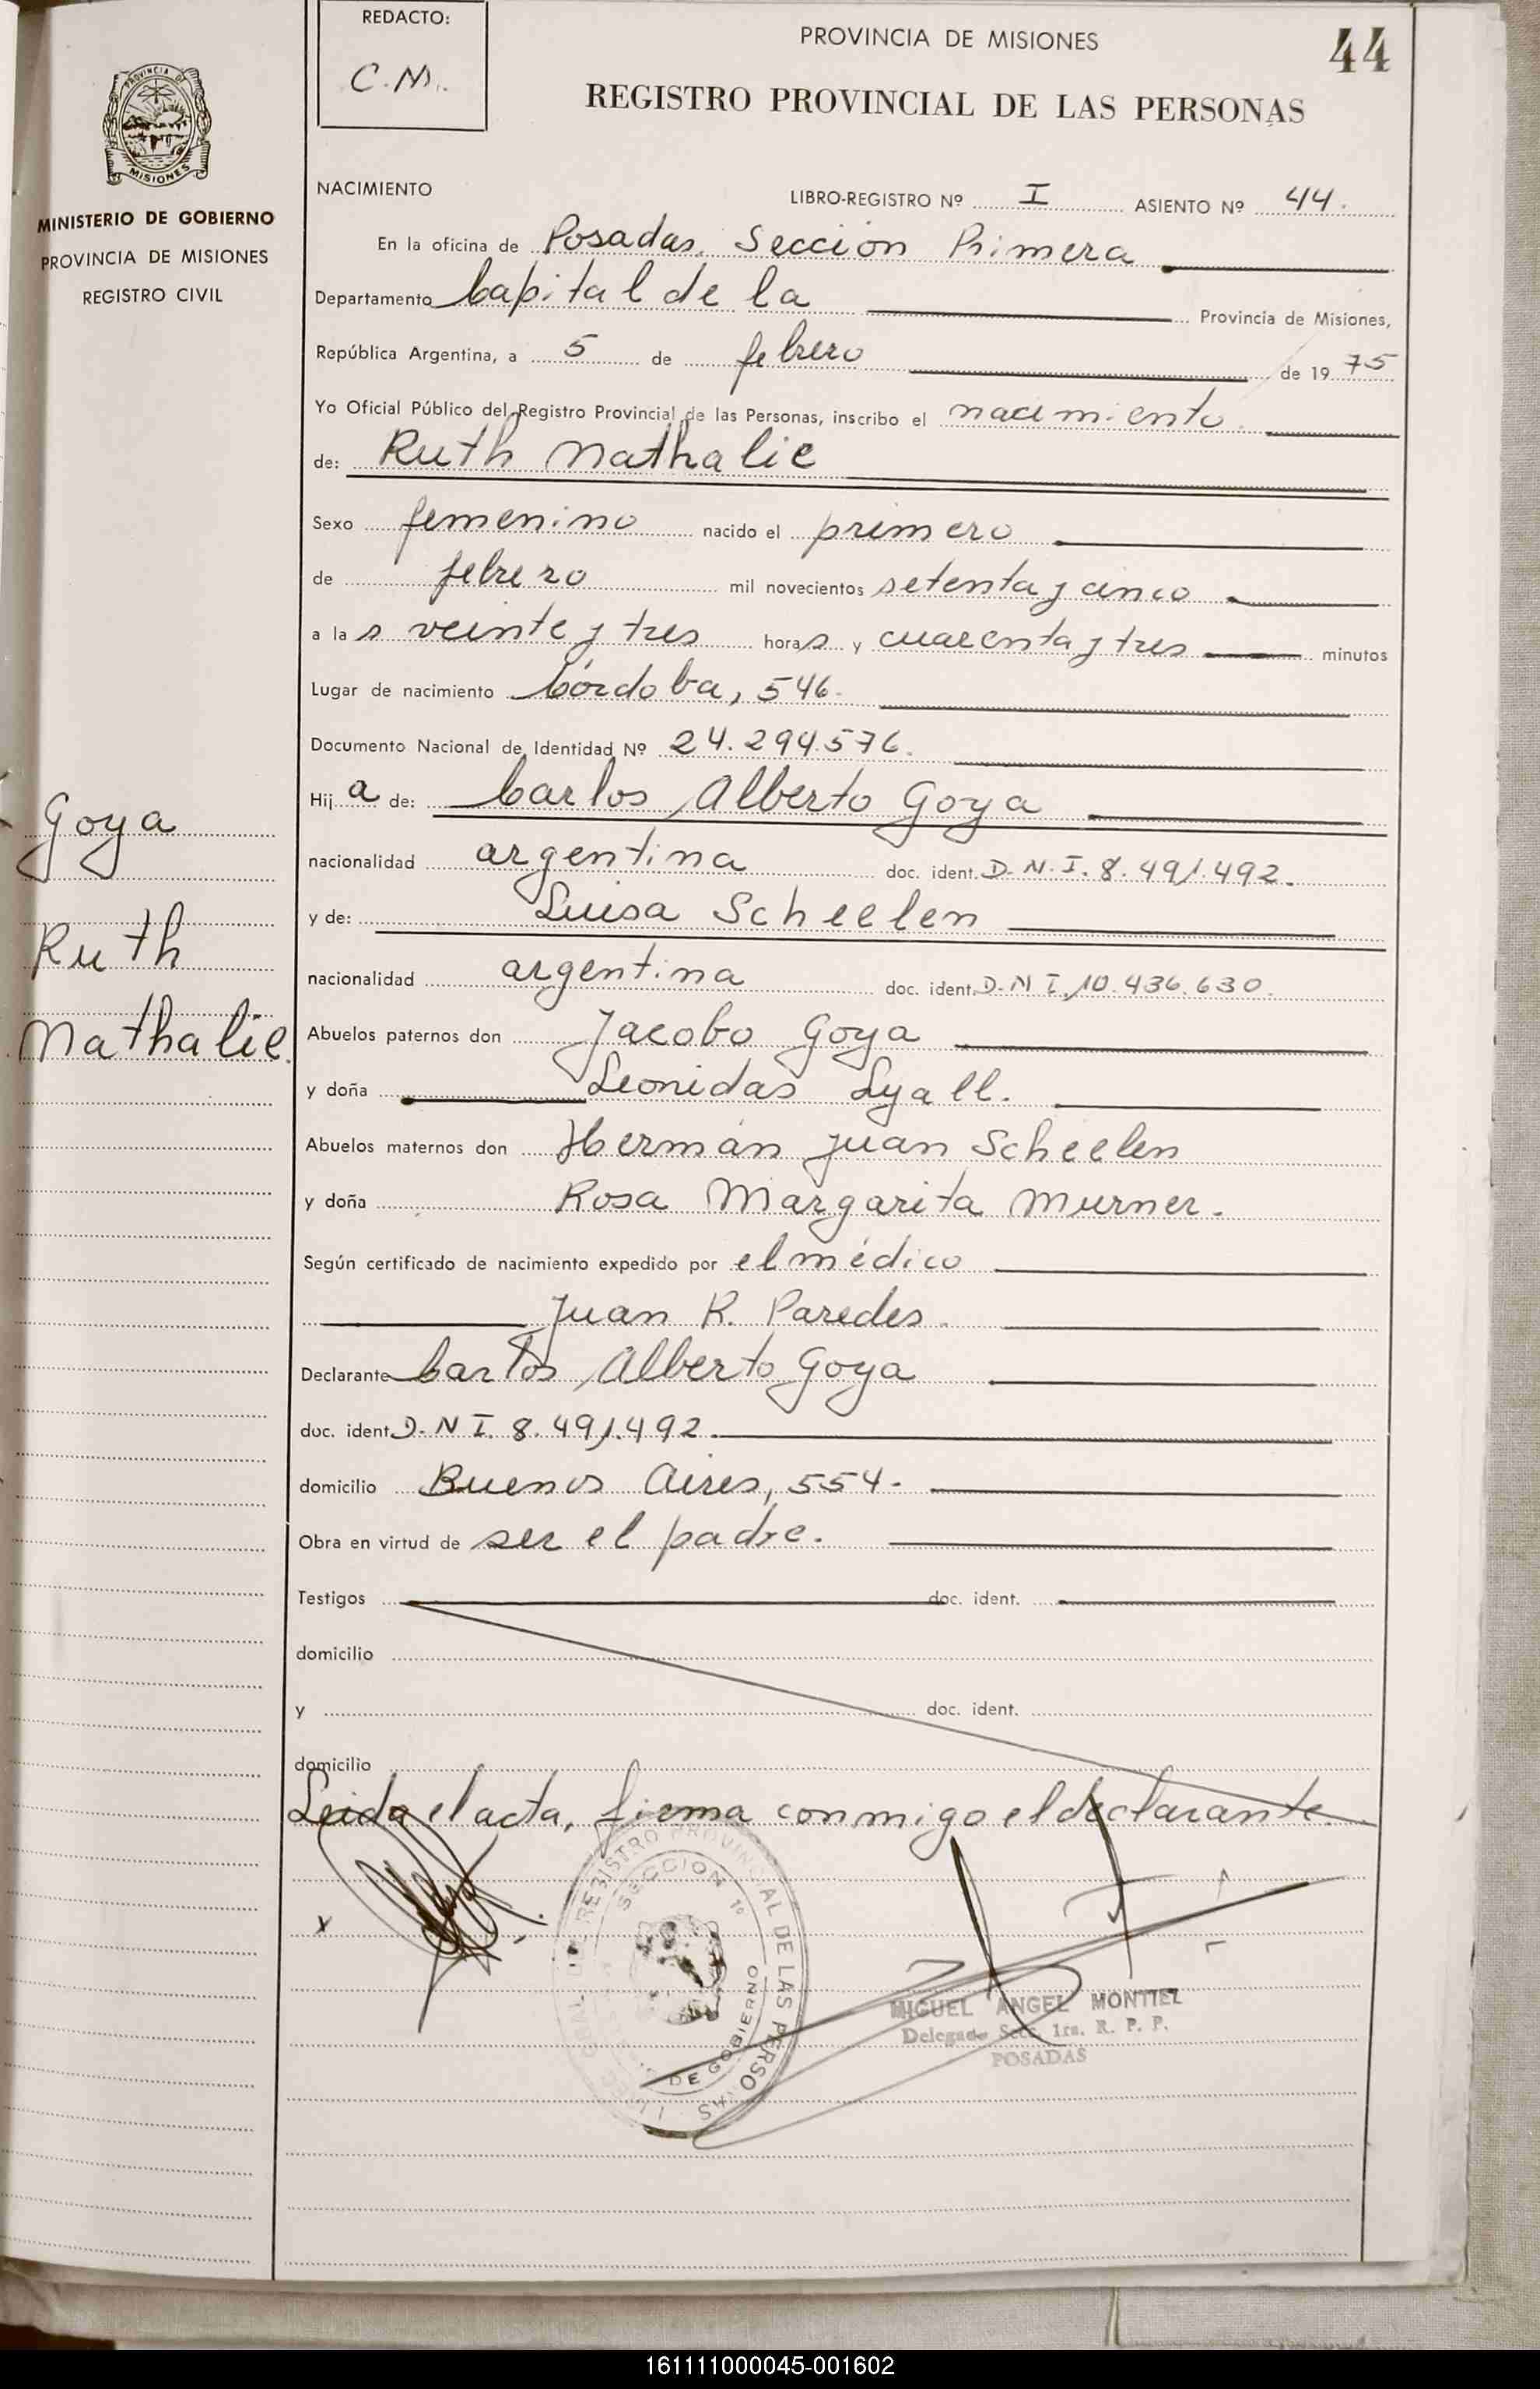 REDACTO:
C.M.
PROVINCIA DE MISIONES
44
REGISTRO PROVINCIAL DE LAS PERSONAS
PROVINCIA DE
MISIONES
MINISTERIO DE GOBIERNO
PROVINCIA DE MISIONES
REGISTRO CIVIL
NACIMIENTO
LIBRO-REGISTRO Nº I ASIENTO Nº 44.
En la oficina de Posadas. Sección Primera
Departamento Capital de la Provincia de Misiones,
República Argentina, a 5 de febrero de 1975
Yo Oficial Público del Registro Provincial de las Personas, inscribo el nacimiento
de: Ruth Nathalie
Sexo femenino nacido el primero
de febrero mil novecientos setenta y cinco
a las veinte y tres horas y cuarenta y tres minutos
Lugar de nacimiento Córdoba, 546.
Documento Nacional de Identidad Nº 24.294.576.
Hija de: Carlos Alberto Goya
nacionalidad argentina doc. ident. D.N.I. 8.491.492.
y de: Luisa Scheelen
nacionalidad argentina doc. ident. D.N.I. 10.436.630.
Abuelos paternos don Jacobo Goya
y doña Leonidas Lyall.
Abuelos maternos don Hermán Juan Scheelen
y doña Rosa Margarita Murner.
Según certificado de nacimiento expedido por el médico
Juan R. Paredes.
Declarante Carlos Alberto Goya
doc. ident. D.N.I. 8.491.492.
domicilio Buenos Aires, 554.
Obra en virtud de ser el padre.
Testigos doc. ident.
domicilio
y doc. ident.
domicilio
Leida el acta, firma conmigo el declarante.
Goya
Ruth
Nathalie.
X
REGISTRO PROVINCIAL DE LAS PERSONAS
SECCION 1º
DE GOBIERNO
MIGUEL ANGEL MONTIEL
Delegado Secc. 1ra. R. P. P.
POSADAS
161111000045-001602